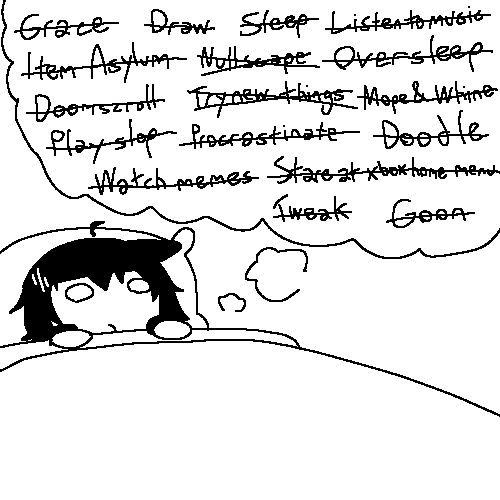 Grace Draw Sleep Listen to music
Item Asylum Nullscape Oversleep
Doomscroll Try new things Mope & Whine
Play slop Procrastinate Doodle
Watch memes Stare at xbox home menu
Tweak Goon